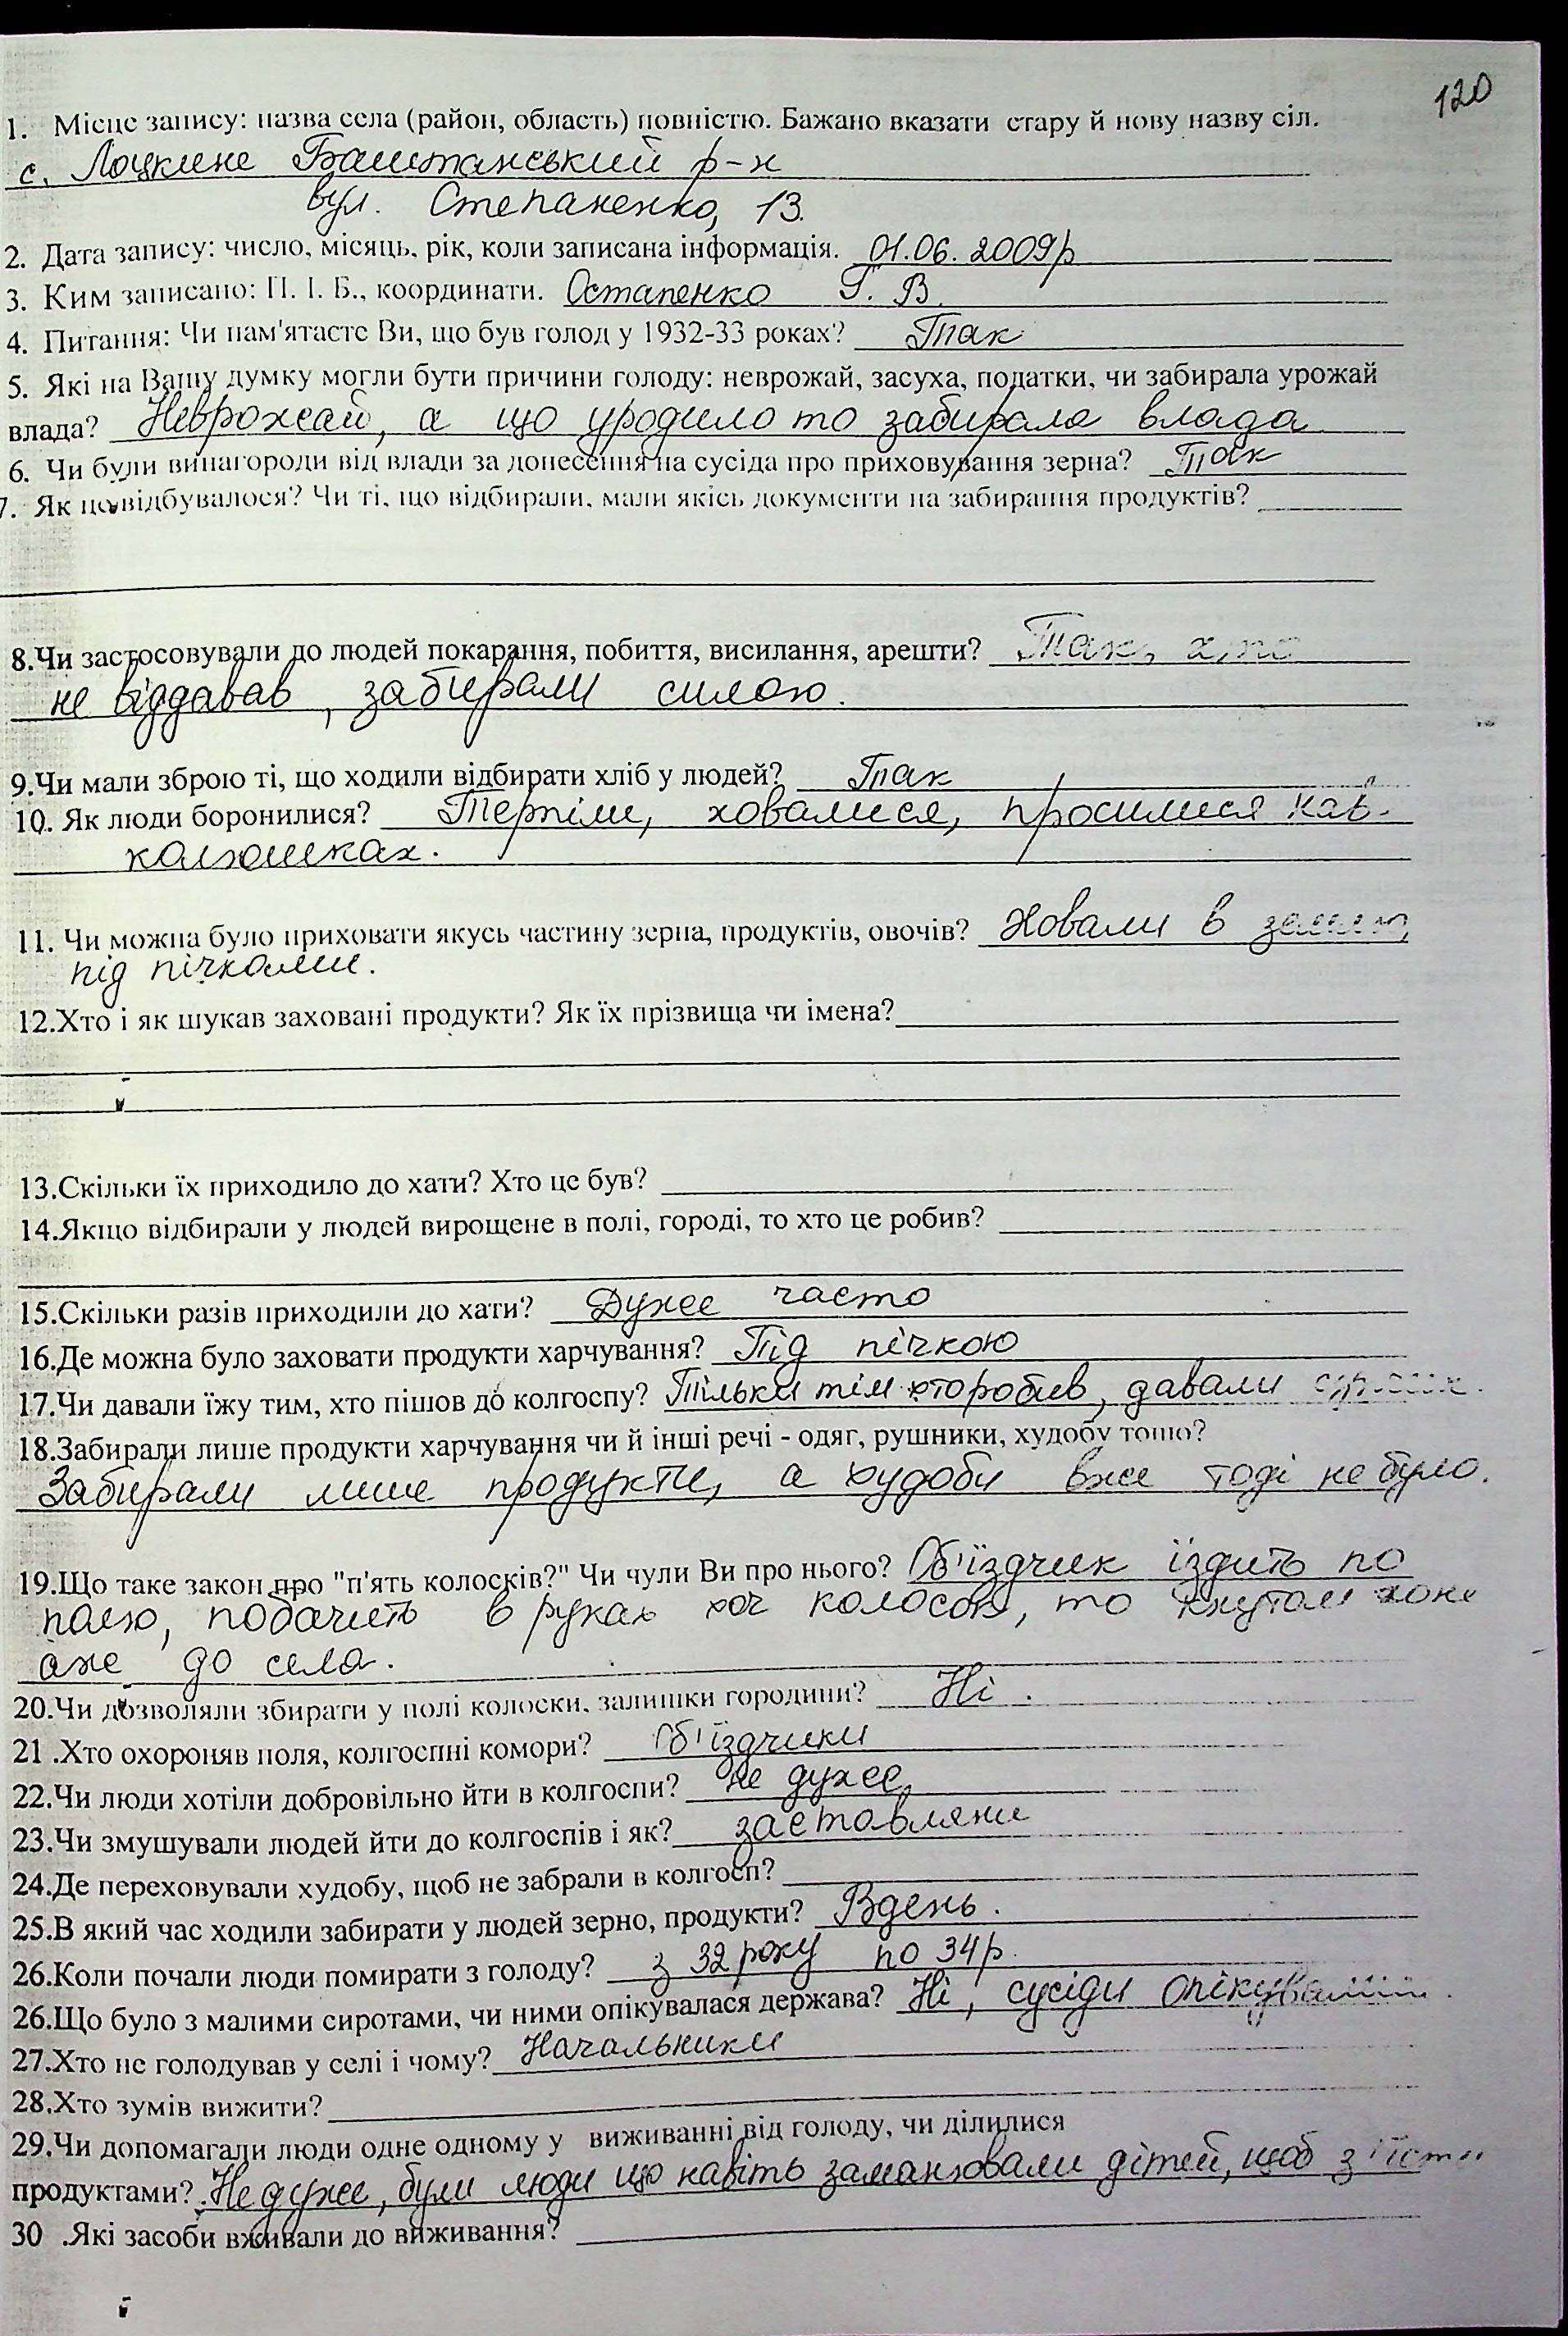 120
1. Місце запису: назва села (район, область) повністю. Бажано вказати стару й нову назву сіл.
с. Лоцкине Баштанський р-н
вул. Степаненко, 13.
2. Дата запису: число, місяць, рік, коли записана інформація. 01.06.2009р
3. Ким записано: П. І. Б., координати. Остапенко Г. В.
4. Питання: Чи пам'ятаєте Ви, що був голод у 1932-33 роках? Так
5. Які на Вашу думку могли бути причини голоду: неврожай, засуха, податки, чи забирала урожай
влада? Неврожай, а що уродило то забирала влада
6. Чи були винагороди від влади за донесення на сусіда про приховування зерна? Так
7. Як це відбувалося? Чи ті, що відбирали, мали якісь документи на забирання продуктів?
8.Чи застосовували до людей покарання, побиття, висилання, арешти? Так, хто
не віддавав, забирали силою.
9.Чи мали зброю ті, що ходили відбирати хліб у людей? Так
10. Як люди боронилися? Терпіли, ховалися, просилися нав-
колюшках.
11. Чи можна було приховати якусь частину зерна, продуктів, овочів? Ховали в землю,
під пічками.
12.Хто і як шукав заховані продукти? Як їх прізвища чи імена?
13.Скільки їх приходило до хати? Хто це був?
14.Якщо відбирали у людей вирощене в полі, городі, то хто це робив?
15.Скільки разів приходили до хати? Дуже часто
16.Де можна було заховати продукти харчування? Під пічкою
17.Чи давали їжу тим, хто пішов до колгоспу? Тільки тім хто робив, давали
18.Забирали лише продукти харчування чи й інші речі - одяг, рушники, худобу тощо?
Забирали лише продукти, а худоби вже тоді не було.
19.Що таке закон про "п'ять колосків?" Чи чули Ви про нього? Об'їздчик їздить по
полю, побачить в руках хоч колосок, то кнутом
аже до села.
20.Чи дозволяли збирати у полі колоски, залишки городини? Ні.
21 .Хто охороняв поля, колгоспні комори? Об'їздчики
22.Чи люди хотіли добровільно йти в колгоспи? не дуже,
23.Чи змушували людей йти до колгоспів і як? заставляли
24.Де переховували худобу, щоб не забрали в колгосп?
25.В який час ходили забирати у людей зерно, продукти? Вдень.
26.Коли почали люди помирати з голоду? з 32 року по 34р.
26.Що було з малими сиротами, чи ними опікувалася держава? Ні, сусіди
27.Хто не голодував у селі і чому? Начальники
28.Хто зумів вижити?
29.Чи допомагали люди одне одному у виживанні від голоду, чи ділилися
продуктами? Не дуже, були люди що навіть заманювали дітей, щоб з'їсти
30 .Які засоби вживали до виживання?